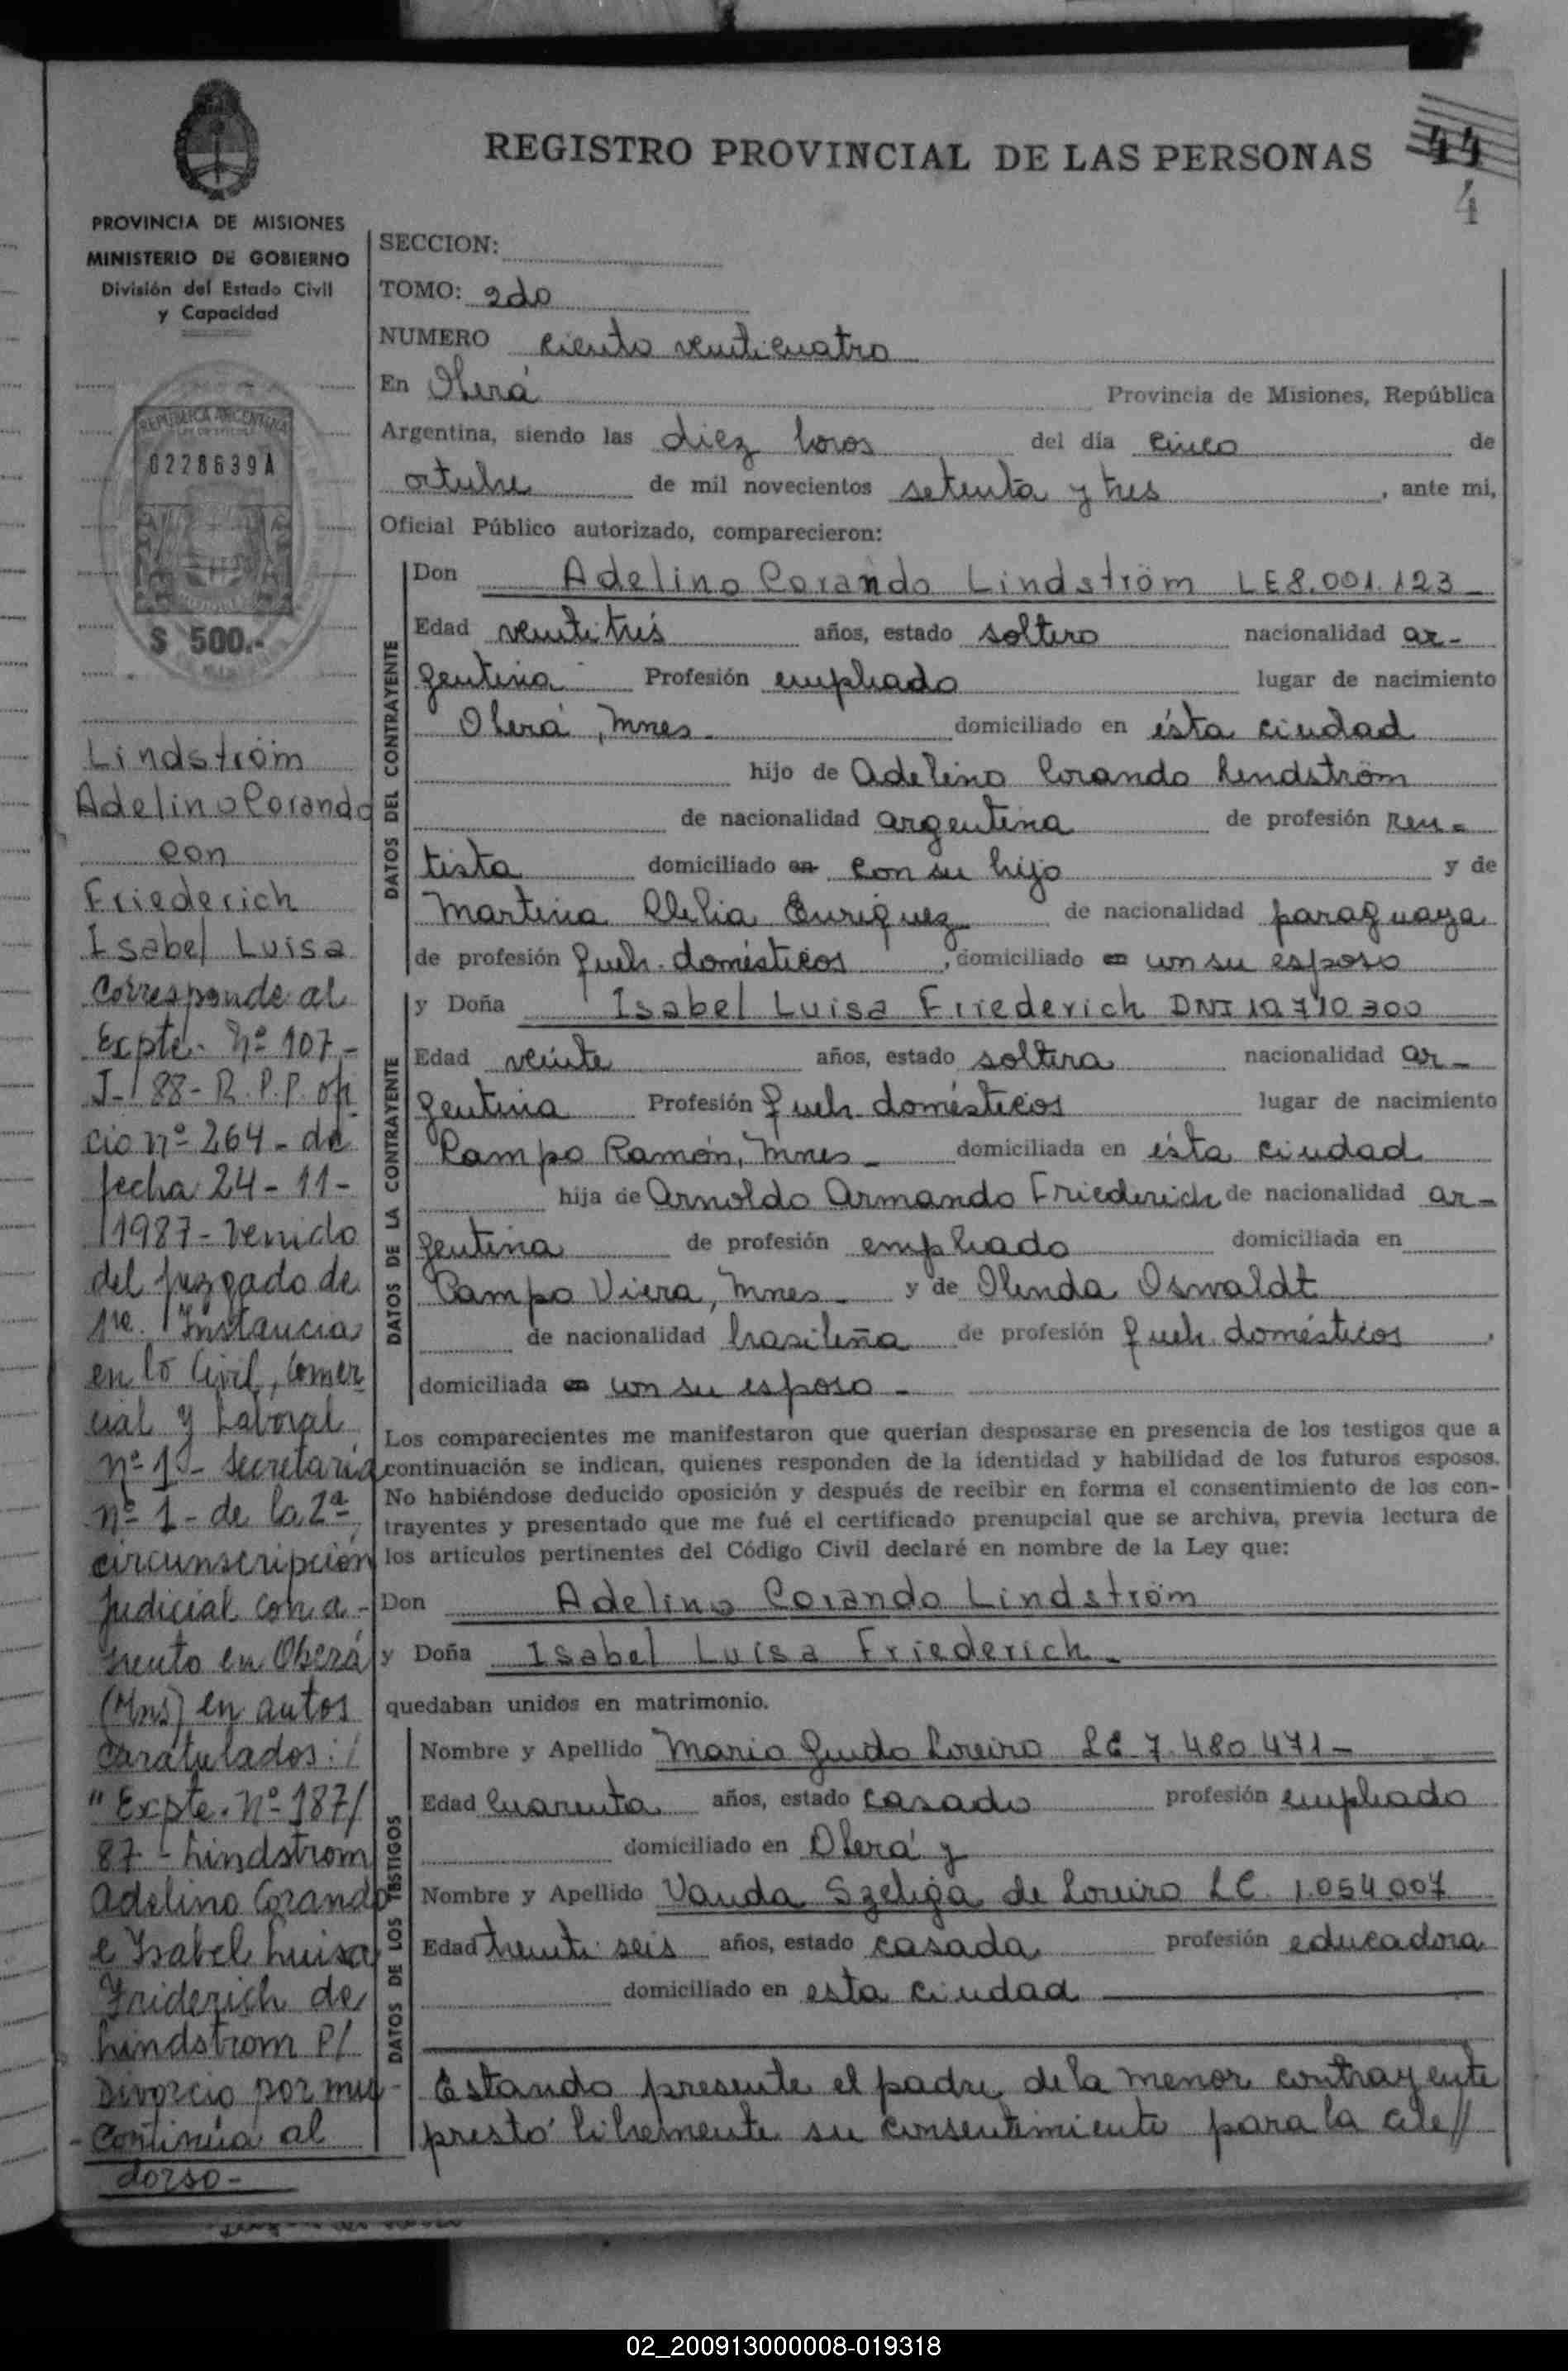 REGISTRO PROVINCIAL DE LAS PERSONAS
44
4
PROVINCIA DE MISIONES
MINISTERIO DE GOBIERNO
División del Estado Civil
y Capacidad
REPUBLICA ARGENTINA
0228639A
$ 500.-
Lindström
Adelino Corando
con
Friederich
Isabel Luisa
Corresponde al
Expte. Nº 107-
J-88-R.P.P. ofi
cio nº 264- de
fecha 24-11-
1987- venido
del juzgado de
1re. Instancia
en lo Civil, Comer
cial y Laboral
nº 1- Secretaria
nº 1- de la 2ª
circunscripción
Judicial con a-
siento en Oberá
(Mns) en autos
caratulados:/
"Expte. Nº 187/
87- Lindstrom
Adelino Corando
e Isabel Luisa
Friderich de
Lindstrom P/
Divorcio por mu-
-continúa al
dorso-
SECCION:
TOMO: 2do
NUMERO ciento veinticuatro
En Oberá Provincia de Misiones, República
Argentina, siendo las diez horas del día cinco de
octubre de mil novecientos setenta y tres, ante mi,
Oficial Público autorizado, comparecieron:
DATOS DEL CONTRAYENTE
Don Adelino Corando Lindström LE 8.001.123
Edad veintitrés años, estado soltero nacionalidad ar-
gentina Profesión empleado lugar de nacimiento
Oberá, Mnes. domiciliado en ésta ciudad
hijo de Adelino Corando Lindström
de nacionalidad argentina de profesión ren-
tista domiciliado en con su hijo y de
Martina Clelia Enriquez de nacionalidad paraguaya
de profesión queh. domésticos, domiciliado en con su esposo
DATOS DE LA CONTRAYENTE
y Doña Isabel Luisa Friederich DNI 10.710.300
Edad veinte años, estado soltera nacionalidad ar-
gentina Profesión queh. domésticos lugar de nacimiento
Campo Ramón, Mnes- domiciliada en ésta ciudad
hija de Arnoldo Armando Friederich de nacionalidad ar-
gentina de profesión empleado domiciliada en
Campo Viera, Mnes- y de Olinda Oswaldt
de nacionalidad brasileña de profesión queh. domésticos,
domiciliada en con su esposo-
Los comparecientes me manifestaron que querían desposarse en presencia de los testigos que a
continuación se indican, quienes responden de la identidad y habilidad de los futuros esposos.
No habiéndose deducido oposición y después de recibir en forma el consentimiento de los con-
trayentes y presentado que me fué el certificado prenupcial que se archiva, previa lectura de
los artículos pertinentes del Código Civil declaré en nombre de la Ley que:
Don Adelino Corando Lindström
y Doña Isabel Luisa Friederich-
quedaban unidos en matrimonio.
DATOS DE LOS TESTIGOS
Nombre y Apellido Mario Guido Loreiro LE 7.480.471-
Edad cuarenta años, estado casado profesión empleado
domiciliado en Oberá y
Nombre y Apellido Vanda Szeliga de Loreiro LC 1.054.007
Edad treinti seis años, estado casada profesión educadora
domiciliado en esta ciudad
Estando presente el padre de la menor contrayente
prestó libremente su consentimiento para la cele//
02_200913000008-019318